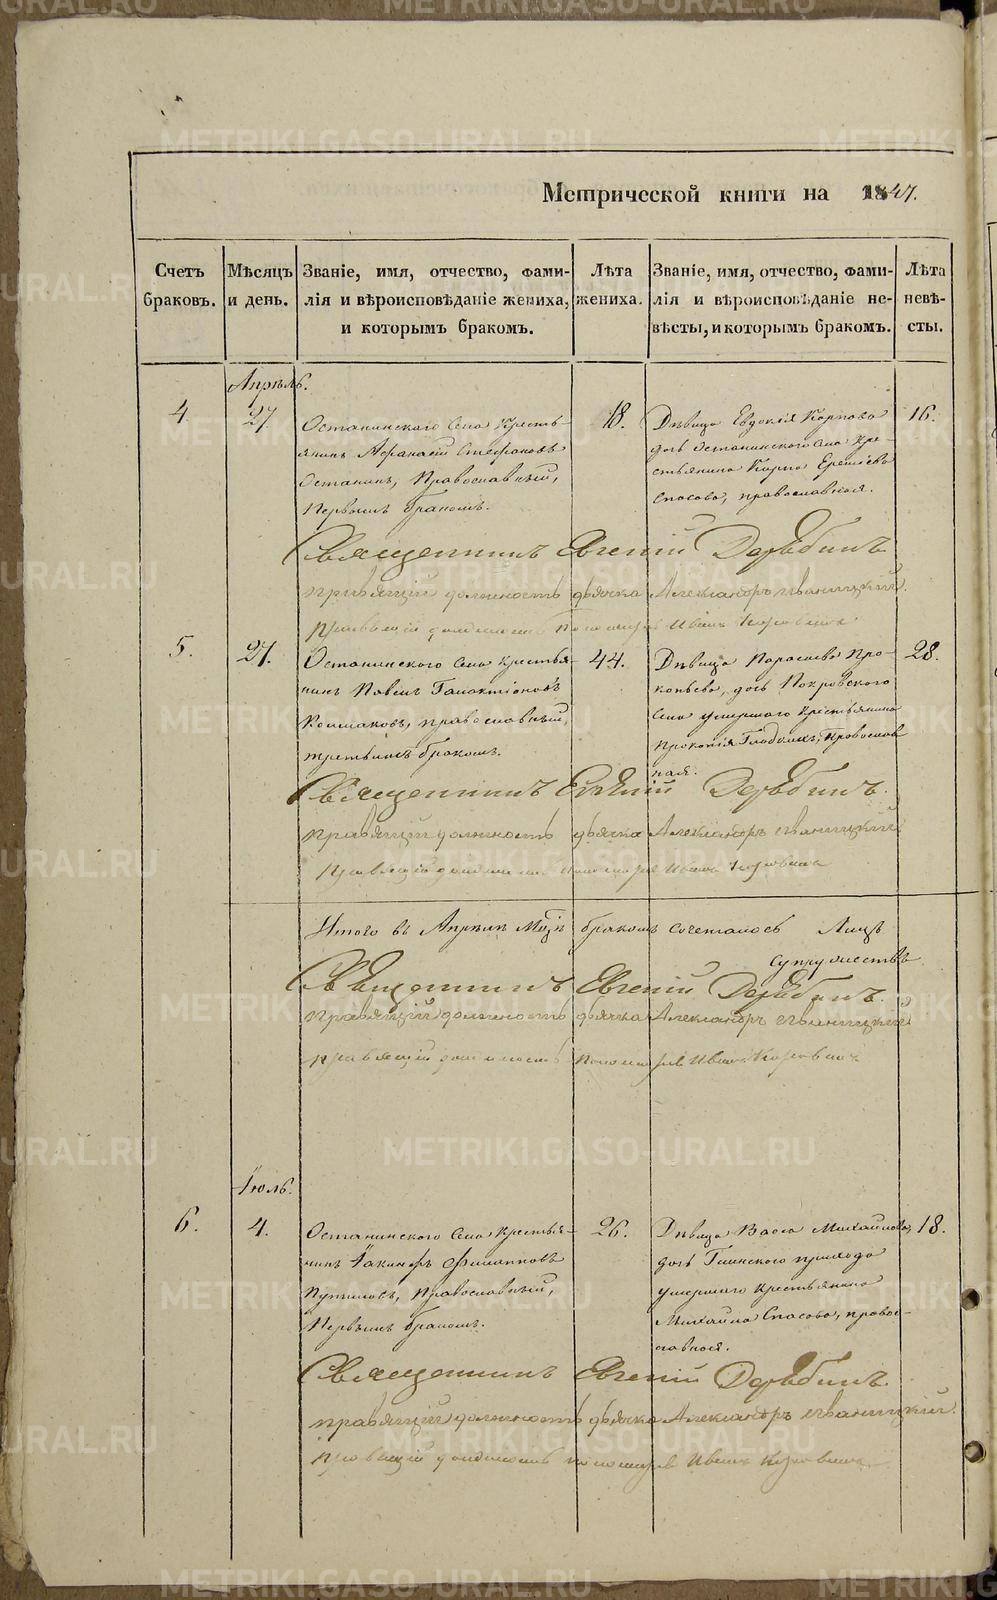 Метрической книги на 1847.
Счетъ браковъ.
Мѣсяцъ и день.
Званіе, имя, отчество, фами-
лія и вѣроисповѣданіе жениха,
и которымъ бракомъ.
Лѣта жениха.
Званіе, имя, отчество, фами-
лія и вѣроисповѣданіе не-
вѣсты, и которымъ бракомъ.
Лѣта невѣ-
сты.
Апрѣль.
4.
27.
Останинскаго Села Кресть-
янинъ Афанасій Стефановъ
Останинъ, Православный,
Первымъ бракомъ.
18.
Дѣвица Евдокія Карпова
дочь Останинскаго села Кре-
стьянина Карпа
Спасова, православная.
16.
Священникъ Евгеній Дерябинъ
правящій должность дьячка Александръ
правящій должность Пономаря Иванъ
5.
27.
Останинскаго Села Крестья-
нинъ Павелъ Галактіоновъ
Колмаковъ, православный,
третьимъ бракомъ.
44.
Дѣвица Парасковья Про-
копьева, дочь Покровскаго
села умершаго Крестьянина
Прокопія Гладкихъ, православ
ная.
28.
Священникъ Евгеній Дерябинъ.
правящій должность дьячка Александръ
правящій должность Пономаря Иванъ
Итого въ Апрѣлѣ Мцѣ бракомъ сочеталось Лицъ
супружествъ
Священникъ Евгеній Дерябинъ.
правящій должность дьячка Александръ
правящій должность Пономаря Иванъ
Іюль.
6.
4.
Останинскаго Села Крестья-
нинъ Іакинфъ Филипповъ
Путиловъ, Православный,
Первымъ бракомъ.
26.
Дѣвица Васса Михайлова,
дочь Глинскаго прихода
умершаго крестьянина
Михайла Спасова, правос-
лавная.
18.
Священникъ Евгеній Дерябинъ.
правящій должность дьячка Александръ
правящій должность пономаря Иванъ
METRIKI.GASO-URAL.RU